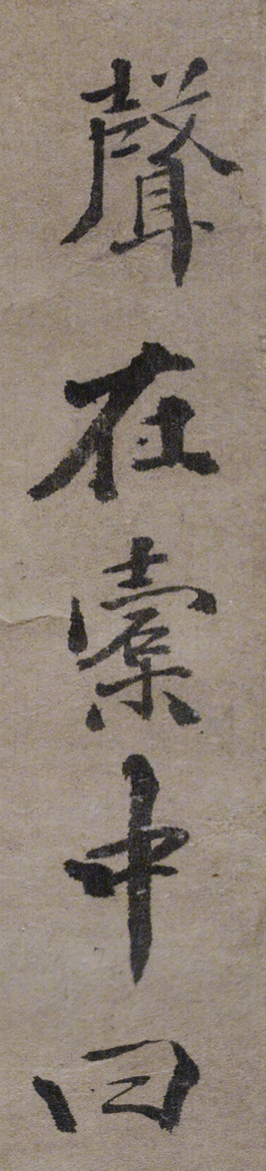 聲在橐中曰